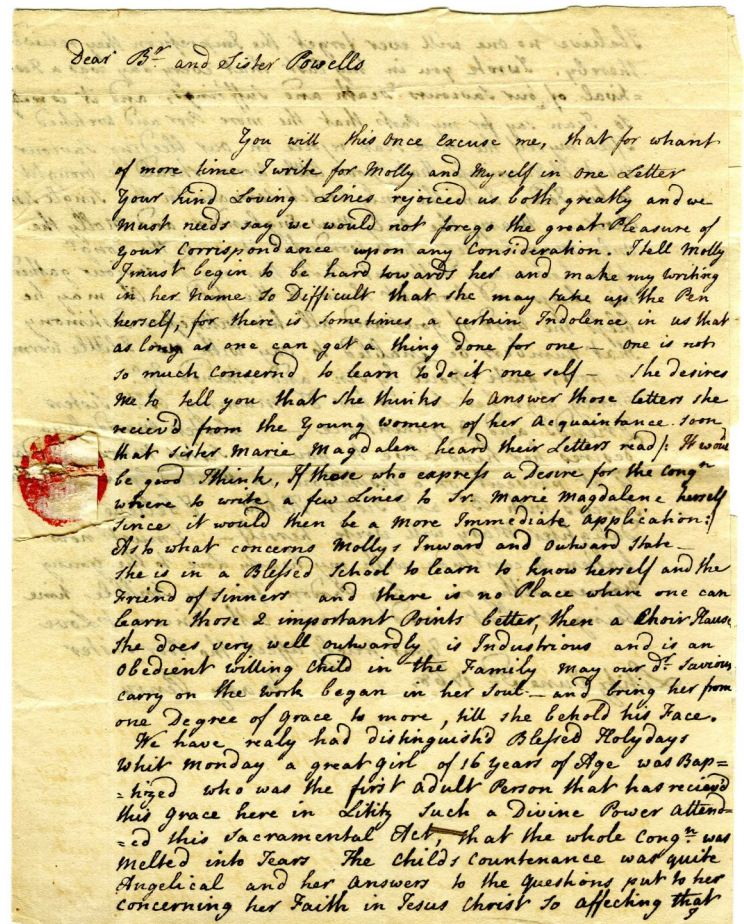 Dear Br. and Sister Powells
You will this once excuse me, that for whant
of more time I write for Molly and Myself in one Letter
Your kind Loving Lines rejoiced us both greatly and we
must needs say we would not forego the great Pleasure of
your Correspondance upon any Consideration. I tell Molly
I must begin to be hard towards her and make my writing
in her Name so Difficult that she may take up the Pen
herself, for there is sometimes a certain Indolence in us that
as long as one can get a thing done for one – one is not
so much Consernd to learn to do it one self – She desires
me to tell you that she thinks to answer those letters she
recievd from the Young women of her acquaintance soon
that Sister Marie Magdalen heard their Letters read /: It woud
be good I think, If those who express a Desire for the Congn
where to write a few Lines to Sr. Marie Magdalene herself
since it would then be a more Immediate application :/
As to what concerns Mollys Inward and Outward State –
she is in a Blessed School to learn to know herself and the
Friend of Sinners and there is no Place where one can
learn those 2 important Points better, then a Choir House,
she does very well outwardly is Industrious and is an
obedient willing Child in the Family may our dr. Saviour
carry on the work began in her Soul – and bring her from
one Degree of grace to more, till she behold his Face.
We have realy had distinguishd Blessed Holydays
Whit Monday a great girl of 16 years of Age was Bap=
=tized who was the first adult Person that has recievd
this grace here in Lititz Such a Divine Power attend=
=ed this Sacramental Act, that the whole Congn. was
melted into Tears The Childs Countenance was quite
Angelical and her answers to the Questions put to her
concerning her Faith in Jesus Christ so affecting that